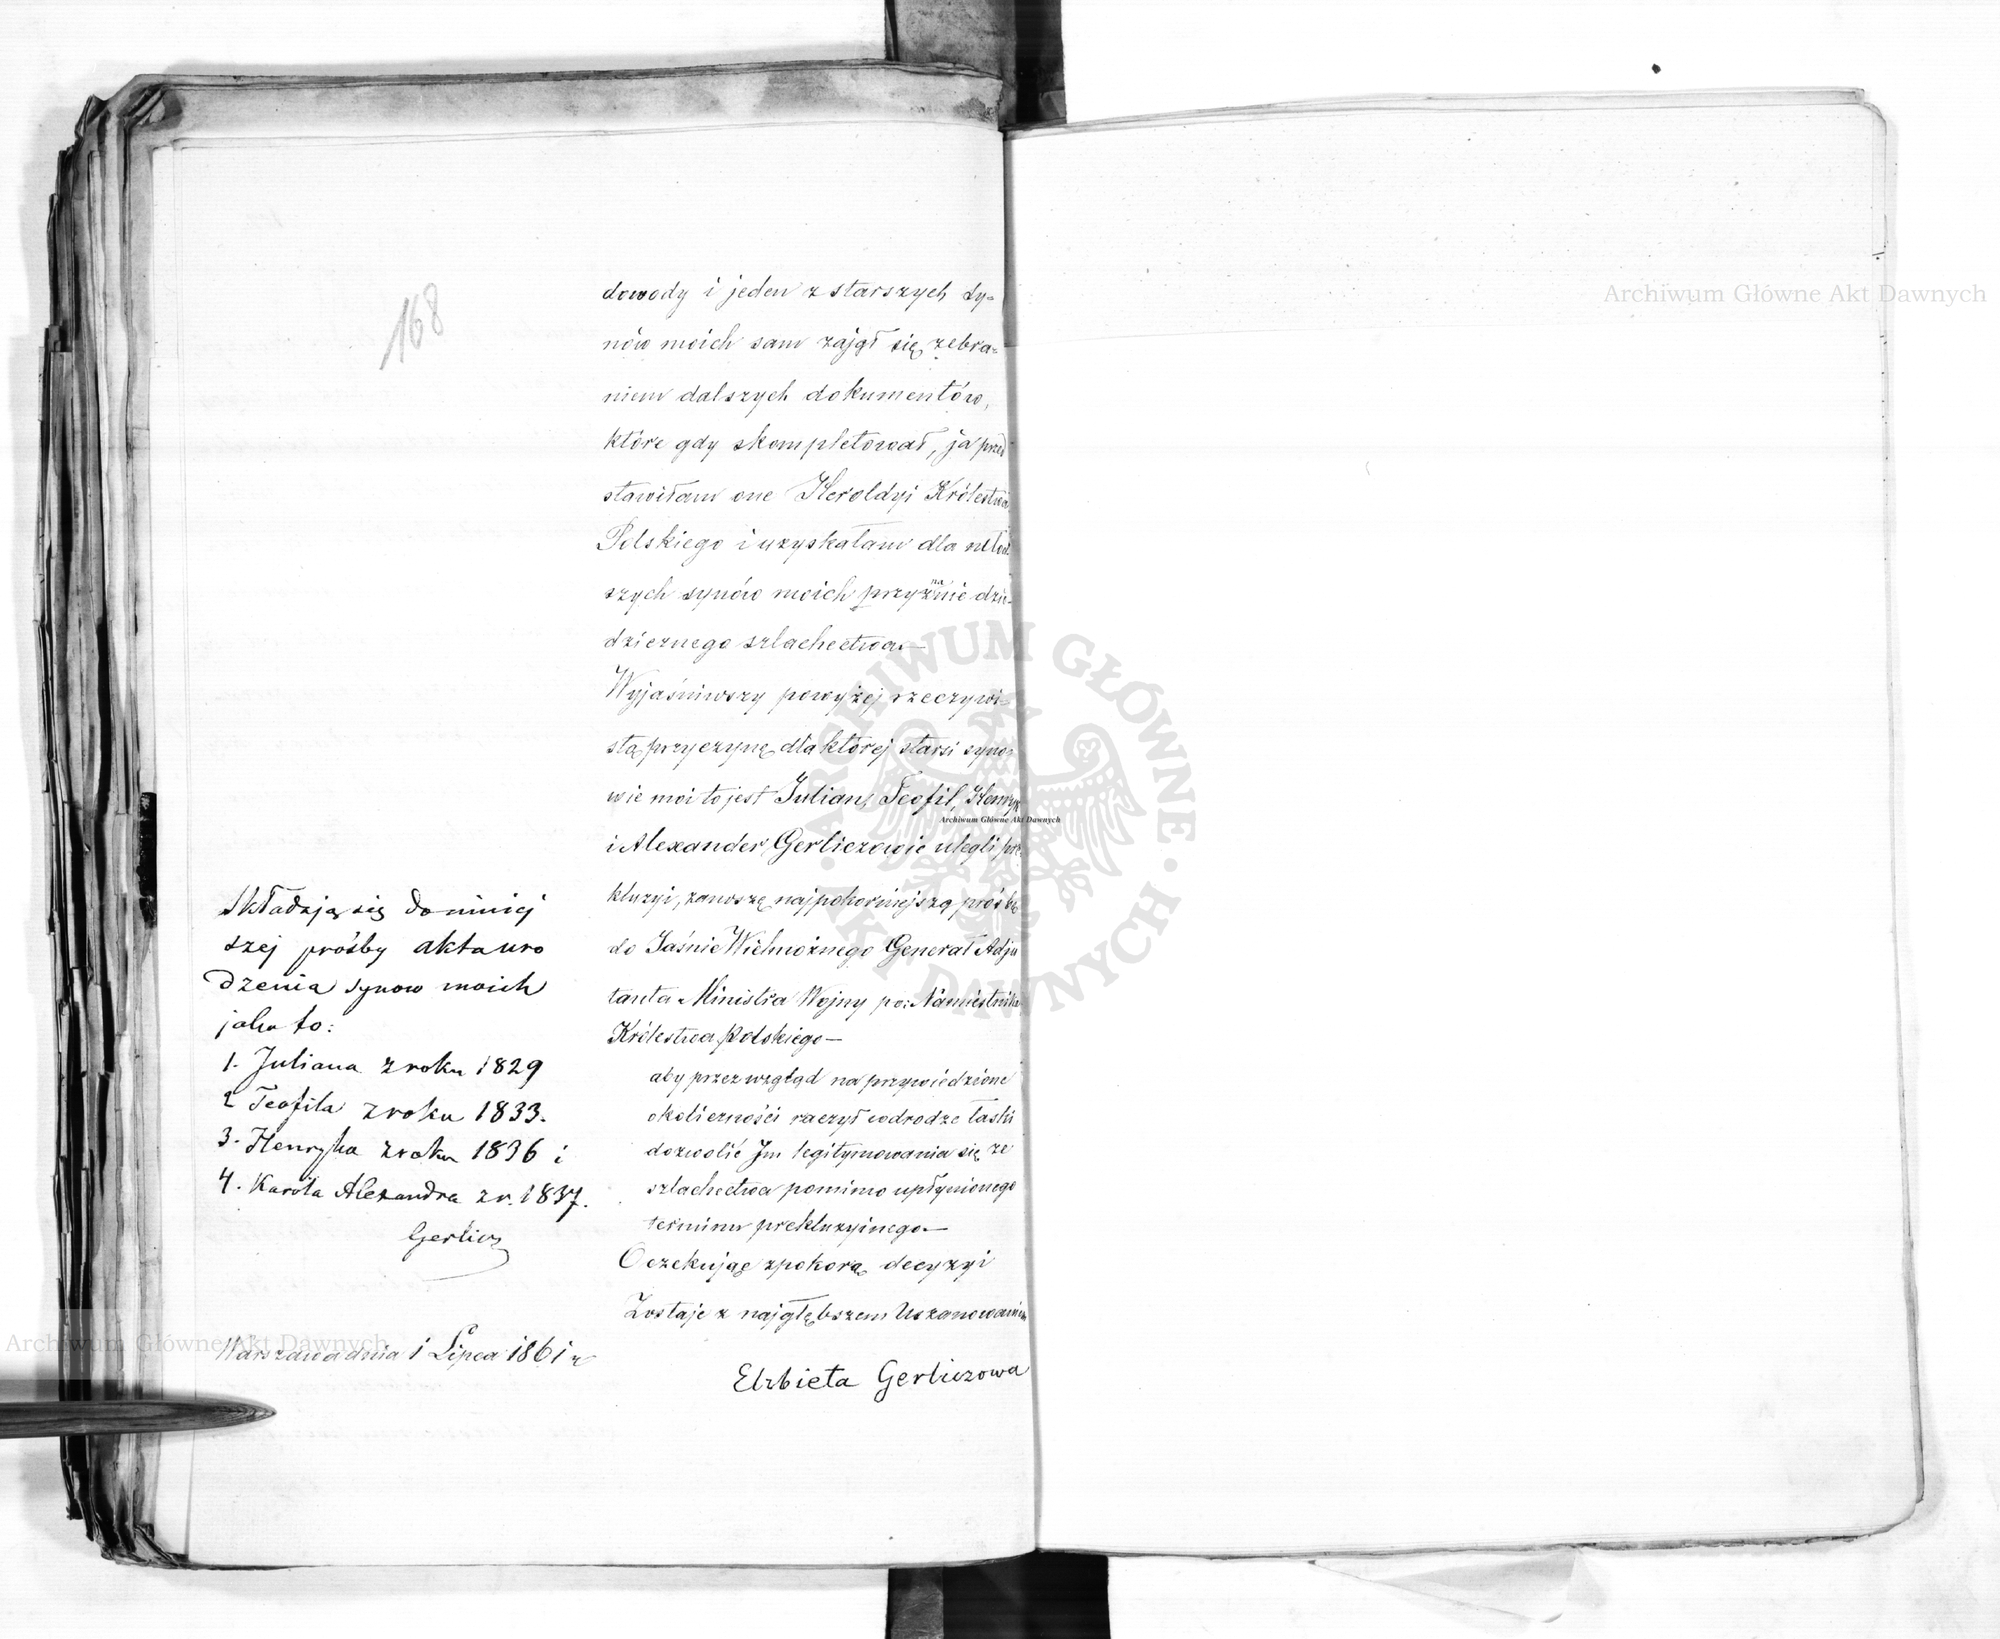 168
dowody i jeden z starszych sy=
nów moich sam zajął się zebra=
niem dalszych dokumentów,
które gdy skompletował, ja przed
stawiłam one Heroldyi Królestwa
Polskiego i uzyskałam dla młod
szych synów moich przyznanie dzie=
dzicznego szlachectwa.—
Wyjaśniwszy powyżej rzeczywi=
stą przyczynę dla której starsi syno=
wie moi to jest Julian, Teofil, Henryk
i Alexander Gerliczowie ulegli pre
kluzyi, zanoszę najpokorniejszą prośbę
do Jaśnie Wielmożnego Generał Adju
tanta Ministra Wojny po: Namiestnika
Królestwa Polskiego—
aby przez wzgląd na przywiedzione
okoliczności raczył w drodze łaski
dozwolić Im legitymowania się ze
szlachectwa pomimo upłynionego
terminu prekluzyjnego.—
Oczekując z pokorą decyzyi
Zostaje z najgłębszem Uszanowaniem
Elzbieta Gerliczowa
Składają się do niniej
szej prośby akta uro
dzenia synow moich
jako to:
1. Juliana z roku 1829
2 Teofila z roku 1833.
3. Henryka z roku 1836 i
4. Karola Alexandra z r. 1837.
Gerlicz
Warszawa dnia 1 Lipca 1861 r
Archiwum Główne Akt Dawnych
Archiwum Główne Akt Dawnych
Archiwum Główne Akt Dawnych
ARCHIWUM GŁÓWNE AKT DAWNYCH